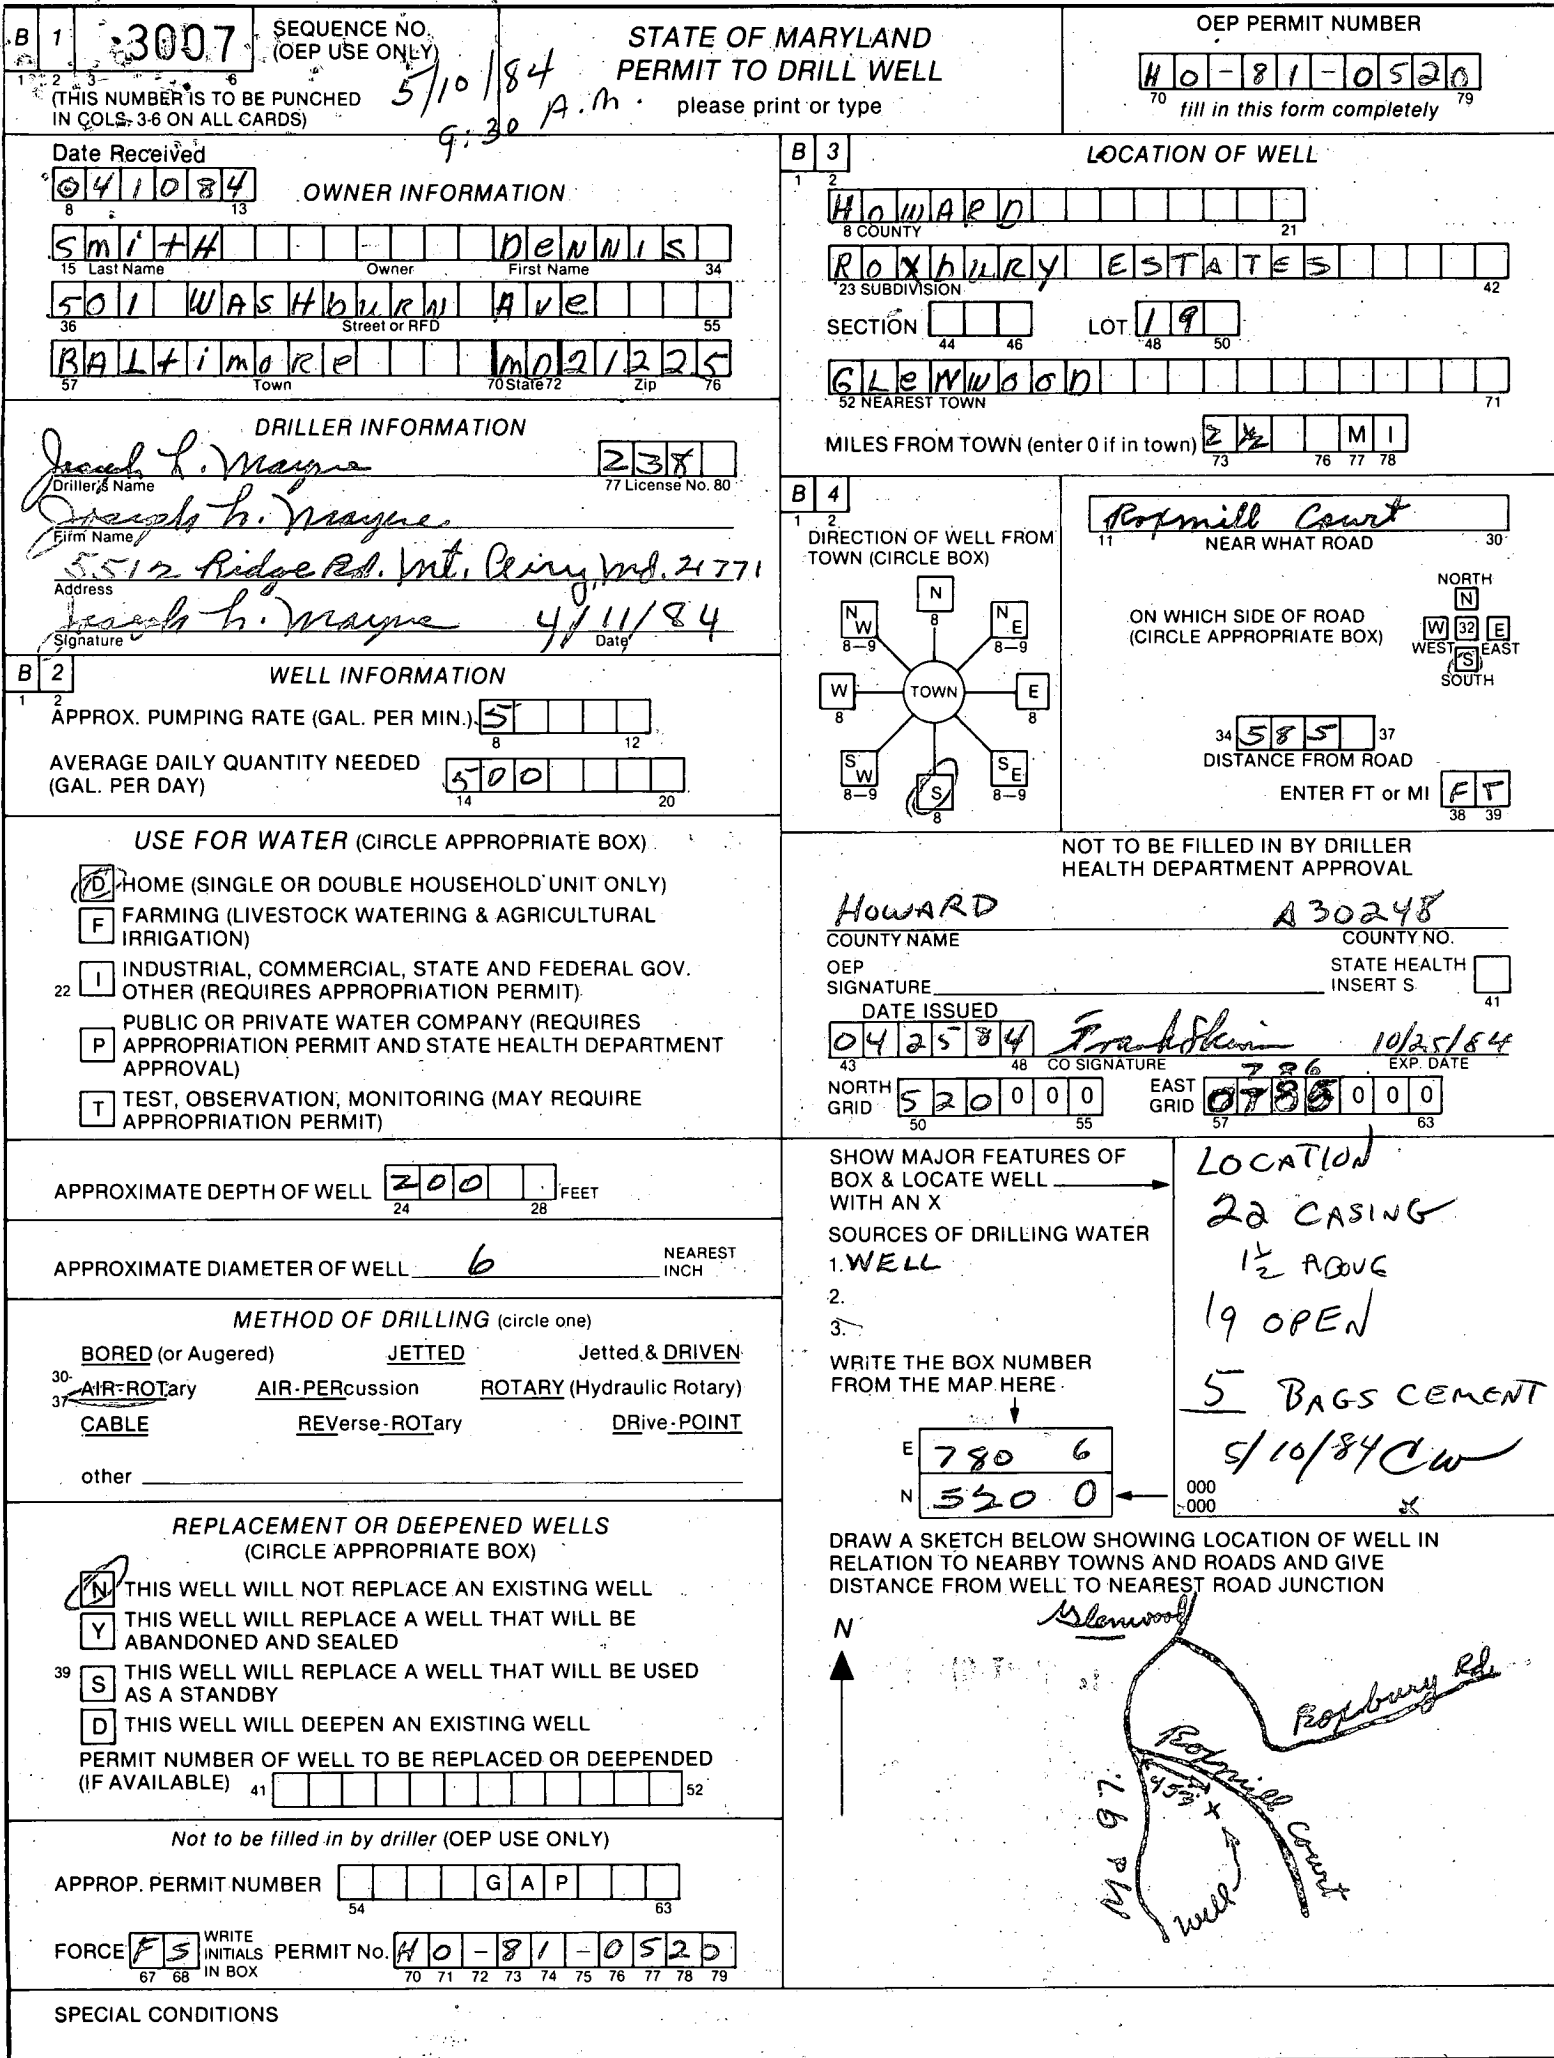 B 1 3007 SEQUENCE NO. (OEP USE ONLY)
1 2 3 6
(THIS NUMBER IS TO BE PUNCHED
IN COLS. 3-6 ON ALL CARDS)
5/10/84
9:30 A.M.
STATE OF MARYLAND
PERMIT TO DRILL WELL
please print or type
OEP PERMIT NUMBER
HO-81-0520
70 79
fill in this form completely
Date Received
041084
8 13
OWNER INFORMATION
SmitH DeNNIS
15 Last Name Owner First Name 34
501 WASHbURN Ave
36 Street or RFD 55
BALtimoRe MD 21225
57 Town 70 State 72 Zip 76
DRILLER INFORMATION
Joseph L. Mayne 238
Driller's Name 77 License No. 80
Joseph L. Mayne
Firm Name
5512 Ridge Rd. Mt. Airy, Md. 21771
Address
Joseph L. Mayne 4/11/84
Signature Date
B 2 WELL INFORMATION
1 2
APPROX. PUMPING RATE (GAL. PER MIN.) 5
8 12
AVERAGE DAILY QUANTITY NEEDED
(GAL. PER DAY) 500
14 20
USE FOR WATER (CIRCLE APPROPRIATE BOX)
D HOME (SINGLE OR DOUBLE HOUSEHOLD UNIT ONLY)
F FARMING (LIVESTOCK WATERING & AGRICULTURAL
IRRIGATION)
22 I INDUSTRIAL, COMMERCIAL, STATE AND FEDERAL GOV.
OTHER (REQUIRES APPROPRIATION PERMIT)
P PUBLIC OR PRIVATE WATER COMPANY (REQUIRES
APPROPRIATION PERMIT AND STATE HEALTH DEPARTMENT
APPROVAL)
T TEST, OBSERVATION, MONITORING (MAY REQUIRE
APPROPRIATION PERMIT)
APPROXIMATE DEPTH OF WELL 200 FEET
24 28
APPROXIMATE DIAMETER OF WELL 6 NEAREST INCH
METHOD OF DRILLING (circle one)
BORED (or Augered) JETTED Jetted & DRIVEN
30-37 AIR-ROTary AIR-PERcussion ROTARY (Hydraulic Rotary)
CABLE REVerse-ROTary DRive-POINT
other
REPLACEMENT OR DEEPENED WELLS
(CIRCLE APPROPRIATE BOX)
N THIS WELL WILL NOT REPLACE AN EXISTING WELL
Y THIS WELL WILL REPLACE A WELL THAT WILL BE
ABANDONED AND SEALED
39 S THIS WELL WILL REPLACE A WELL THAT WILL BE USED
AS A STANDBY
D THIS WELL WILL DEEPEN AN EXISTING WELL
PERMIT NUMBER OF WELL TO BE REPLACED OR DEEPENDED
(IF AVAILABLE) 41 52
Not to be filled in by driller (OEP USE ONLY)
APPROP. PERMIT NUMBER GAP
54 63
FORCE FS WRITE INITIALS IN BOX PERMIT No. HO-81-0520
67 68 70 71 72 73 74 75 76 77 78 79
SPECIAL CONDITIONS
B 3 LOCATION OF WELL
1 2
HoWARD
8 COUNTY 21
RoxbURY ESTATES
23 SUBDIVISION 42
SECTION LOT 19
44 46 48 50
GLeNWooD
52 NEAREST TOWN 71
MILES FROM TOWN (enter 0 if in town) 2 1/2 MI
73 76 77 78
B 4
1 2
DIRECTION OF WELL FROM
TOWN (CIRCLE BOX)
N
8
NW NE
8-9 8-9
W TOWN E
8 8
SW SE
8-9 8-9
S
8
Roxmill Court
11 NEAR WHAT ROAD 30
ON WHICH SIDE OF ROAD
(CIRCLE APPROPRIATE BOX)
NORTH
N
W 32 E
WEST EAST
S
SOUTH
34 585 37
DISTANCE FROM ROAD
ENTER FT or MI FT
38 39
NOT TO BE FILLED IN BY DRILLER
HEALTH DEPARTMENT APPROVAL
HOWARD A30248
COUNTY NAME COUNTY NO.
OEP SIGNATURE STATE HEALTH INSERT S
41
DATE ISSUED
042584 Frank Skinn 10/25/84
43 48 CO SIGNATURE EXP. DATE
786
NORTH GRID 520 000 EAST GRID 0785 000
50 55 57 63
SHOW MAJOR FEATURES OF
BOX & LOCATE WELL
WITH AN X
SOURCES OF DRILLING WATER
1. WELL
2.
3.
WRITE THE BOX NUMBER
FROM THE MAP HERE
E 780 6
N 520 0
000
000
LOCATION
22 CASING
1 1/2 ABOVE
19 OPEN
5 BAGS CEMENT
5/10/84 CW
x
DRAW A SKETCH BELOW SHOWING LOCATION OF WELL IN
RELATION TO NEARBY TOWNS AND ROADS AND GIVE
DISTANCE FROM WELL TO NEAREST ROAD JUNCTION
N
Glenwood
Roxbury Rd.
Roxmill Court
Md 97
X
Well